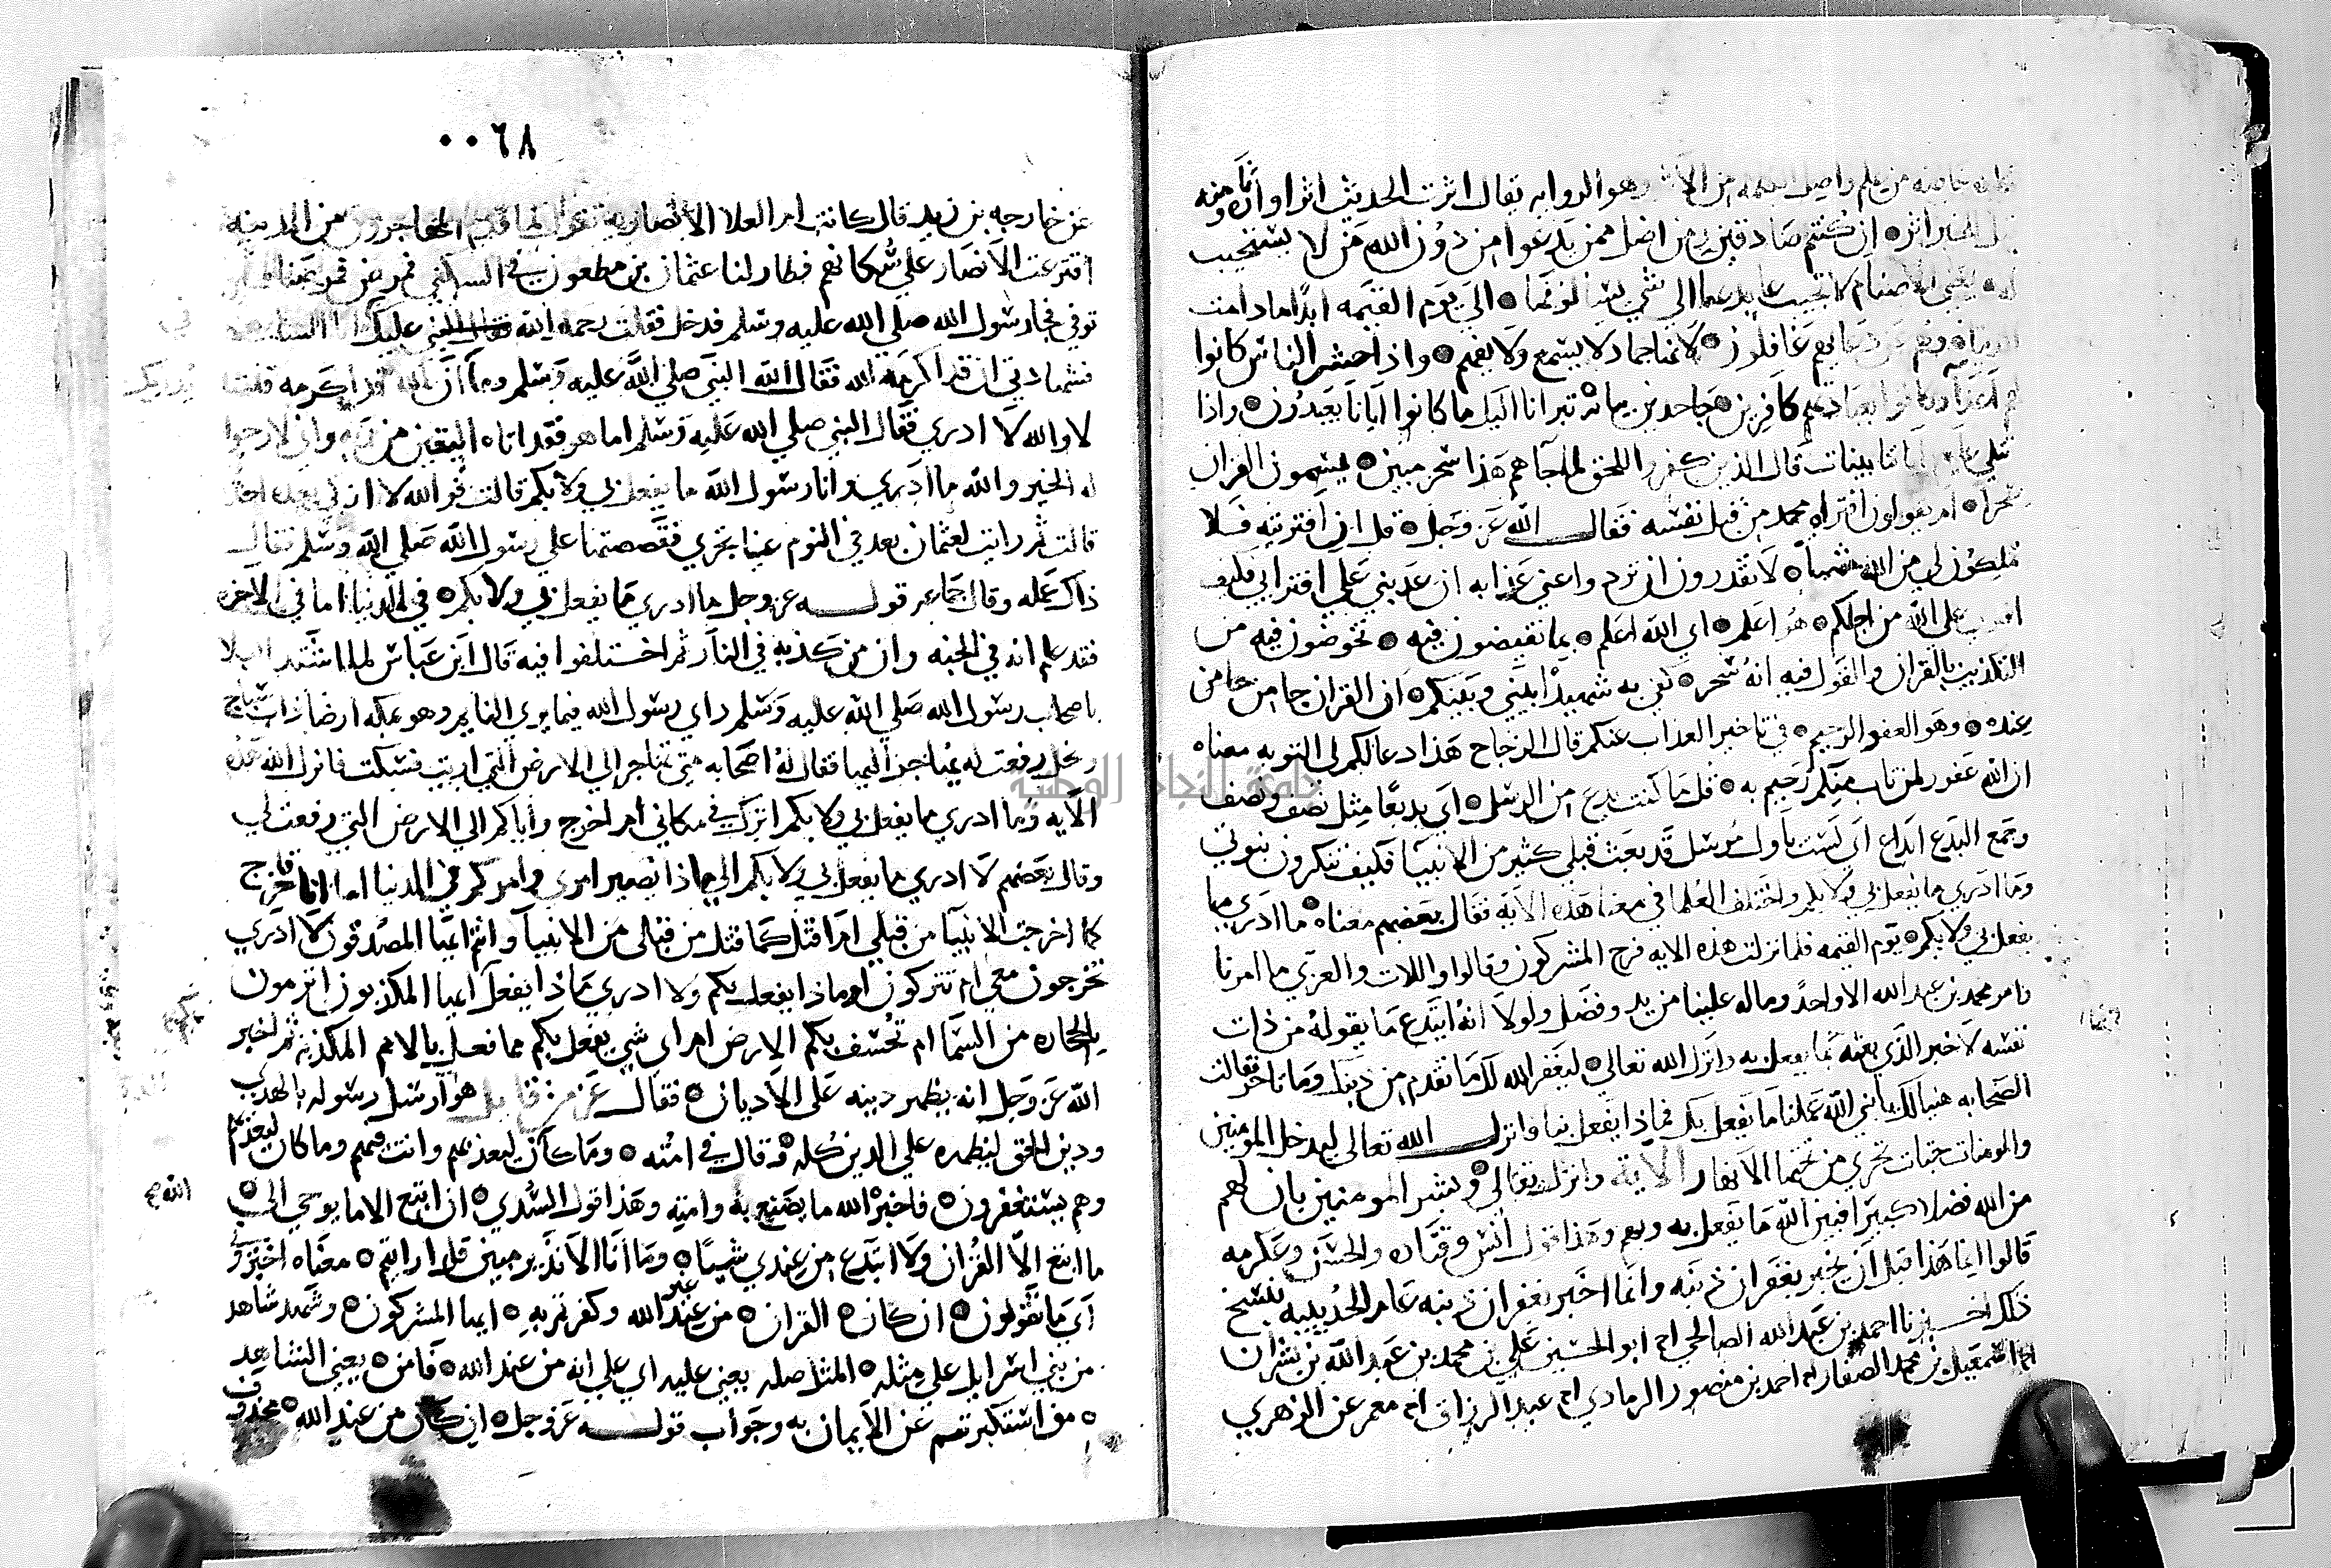 وهو الرواية يقال اثرت الحديث اثرا واثارة ومنه
قيل للخبر اثر ان كنتم صادقين ومن اضل ممن يدعوا من دون الله من لا يستجيب
له يعني الاصنام لا تجيب عابديها الي شي يسالونها الي يوم القيمه ابدا ما دامت
الدنيا وهم عن دعايهم غافلون لانها جماد لا يسمع ولا يفهم واذا حشر الناس كانوا
لهم اعدآ وكانوا بعبادتهم كافرين جاحدين بيانه تبرانا اليك ما كانوا ايانا يعبدون واذا
تتلي عليهم اياتنا بينات قال الذين كفروا للحق لما جآهم هذا سحر مبين يسمون القران
سحرا ام يقولون افتراه محمد من قبل نفسه فقال الله عز وجل قل ان افتريته فلا
تملكون لي من الله شيا لا تقدرون ان تردوا عني عذابه ان عذبني علي افترايي فكيف
افتري علي الله من اجلكم هو اعلم اي الله اعلم بما تفيضون فيه تخوضون فيه من
التكذيب بالقران والقول فيه انه سحر كفي به شهيدا بيني وبينكم ان القران جا من
عنده وهو الغفور الرحيم في تاخير العذاب عنكم قال الزجاج هذا دعا لكم الي التوبه معناه
ان الله غفور لمن تاب منكم رحيم به قل ما كنت بدعا من الرسل اي بديعا مثل نصف ونصيف
وجمع البدع ابداع اي لست باول مرسل قد بعث قبلي كثير من الانبيا فكيف تنكرون نبوتي
وما ادري ما يفعل بي ولا بكم واختلف العلما في معنا هذه الآيه فقال بعضهم معناه ما ادري ما
يفعل بي ولا بكم يوم القيمه فلما نزلت هذه الايه فرح المشركون وقالوا واللات والعزي ما امرنا
وامر محمد بن عبد الله الا واحد وما له علينا من يد وفضل ولولا انه ابتدع ما يقوله من ذات
نفسه لاخبر الذي بعثه بما يفعل به وانزل الله تعالي ليغفر لك الله ما تقدم من ذنبك وما تاخر فقالت
الصحابه هنيا لك يا نبي الله علمنا ما يفعل بك فماذا يفعل بنا فانزل الله تعالي ليدخل المومنين
والمومنات جنات تجري من تحتها الانهار الآية وانزل تعالي وبشر المومنين بان لهم
من الله فضلا كبيرا فبين الله ما يفعل به وبهم وهذا قول انس وقتاده والحسن وعكرمه
قالوا انما هذا قبل ان يخبر بغفران ذنبه وانما اخبر بغفران ذنبه عام الحديبيه فنسخ
ذلك اخبرنا احمد بن عبد الله الصالحي انا ابو الحسين علي بن محمد بن عبد الله بن بشران
انا اسمعيل بن محمد الصفار انا احمد بن منصور الرمادي انا عبد الرزاق انا معمر عن الزهري
٠٠٦٨
عن خارجه بن زيد قال كانت ام العلا الانصارية تقول لما قدم المهاجرون من المدينه
اقترعت الانصار علي سكناهم فطار لنا عثمان بن مظعون في السكني فمرض فمرضناه
توفي فجا رسول الله صلي الله عليه وسلم فدخل فقلت رحمه الله عليك ابا السايب
فشهادتي ان قد اكرمك الله فقال النبي صلي الله عليه وسلم وما ان الله قد اكرمه قلت
لا والله لا ادري فقال النبي صلي الله عليه وسلم اما هو فقد اتاه اليقين من ربه واني لارجوا
له الخير والله ما ادري وانا رسول الله ما يفعل بي ولا بكم قالت فوالله لا ازكي بعده احدا
قالت ثم رايت لعثمان بعد في النوم عينا تجري فقصصتها علي رسول الله صلي الله وسلم فقال
ذاك عمله وقال جماعه قوله عز وجل ما ادري ما يفعل بي ولا بكم في الدنيا اما في الاخره
فقد علم انه في الجنه وان من كذبه في النار ثم اختلفوا فيه قال ابن عباس لما اشتد البلا
باصحاب رسول الله صلي الله عليه وسلم راي رسول الله فيما يري النايم وهو بمكه ارضا ذات سباخ
ونخل رفعت له يهاجر اليها فقال له اصحابه متي تهاجر الي الارض التي اريت فسكت فانزل الله هذه
الآيه وما ادري ما يفعل بي ولا بكم اترك في مكاني ام اخرج واياكم الي الارض التي رفعت لي
وقال بعضهم لا ادري ما يفعل بي ولا بكم الي ماذا يصير امري وامركم في الدنيا اما انا فاخرج
كما اخرجت الانبيآ من قبلي ام اقتل كما قتل من قبلي من الانبيآ وانتم ايها المصدقون لا ادري
تخرجون معي ام تتركون او ماذا يفعل بكم ولا ادري ماذا يفعل ايها المكذبون اترمون
بالحجاره من السمآ ام تخسف بكم الارض ام اي شي يفعل بكم مما فعل بالامم المكذبه ثم اخبر
الله عز وجل انه يظهر دينه علي الاديان فقال عز من قايل هو ارسل رسوله بالهدي
ودين الحق ليظهره علي الدين كله وقال في امته وما كان ليعذبهم وانت فيهم وما كان معذبهم
الله
وهم يستغفرون فاخبر الله ما يصنع به وامته وهذا قول السدي ان اتبع الا ما يوحي الي
ما اتبع الا القران ولا ابتدع من عندي شيا وما انا الا نذير مبين قل ارايتم معناه اخبروني
اي ما تقولون ان كان القران من عند الله وكفرتم به ايها المشركون وشهد شاهد
من بني اسرايل علي مثله المثل صله يعني عليه اي علي انه من عند الله فآمن يعني الشاهد
واستكبرتم عن الايمان به وجواب قوله عز وجل ان كان من عند الله محذوف